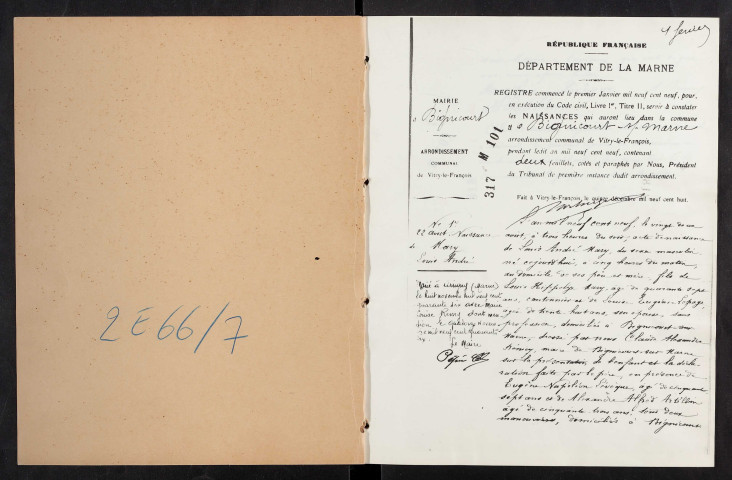 2 E 66/7
1 feuillet
RÉPUBLIQUE FRANÇAISE
DÉPARTEMENT DE LA MARNE
MAIRIE
Bignicourt
ARRONDISSEMENT
COMMUNAL
de Vitry-le-François
317 M 101
REGISTRE commencé le premier Janvier mil neuf cent neuf, pour,
en exécution du Code civil, Livre Ier, Titre II, servir à constater
les NAISSANCES qui auront lieu dans la commune
Bignicourt s/ Marne
arrondissement communal de Vitry-le-François,
pendant ledit an mil neuf cent neuf, contenant
deux feuillets, cotés et paraphés par Nous, Président
du Tribunal de première instance dudit arrondissement.
Fait à Vitry-le-François, le quinze décembre mil neuf cent huit.
No 1er
22 août Naissance
de
Mary
Louis André
L'an mil neuf cent neuf, le vingt deux
août, à trois heures du soir, acte de naissance
de Louis André Mary, du sexe masculin
né aujourd'hui, à cinq heures du matin
au domicile de ses père et mère, fils de
Louis Hippolyte Mary, agé de quarante sept
ans, cantonnier et de Louise Eugénie Lepage,
agée de trente huit ans, son épouse, sans
profession, domiciliés à Bignicourt sur
Marne, dressé par nous Claude Alexandre
maire de Bignicourt-sur-Marne
sur la présentation de l'enfant et la décla
ration faite par le père, en présence de
Eugène Napoléon Lévêque, agé de cinquante
sept ans et de Alexandre Alfred
agé de cinquante trois ans, tous deux
manouvriers, domiciliés à Bignicourt
Marié à (Marne)
le huit novembre mil neuf cent
quarante
Le Maire